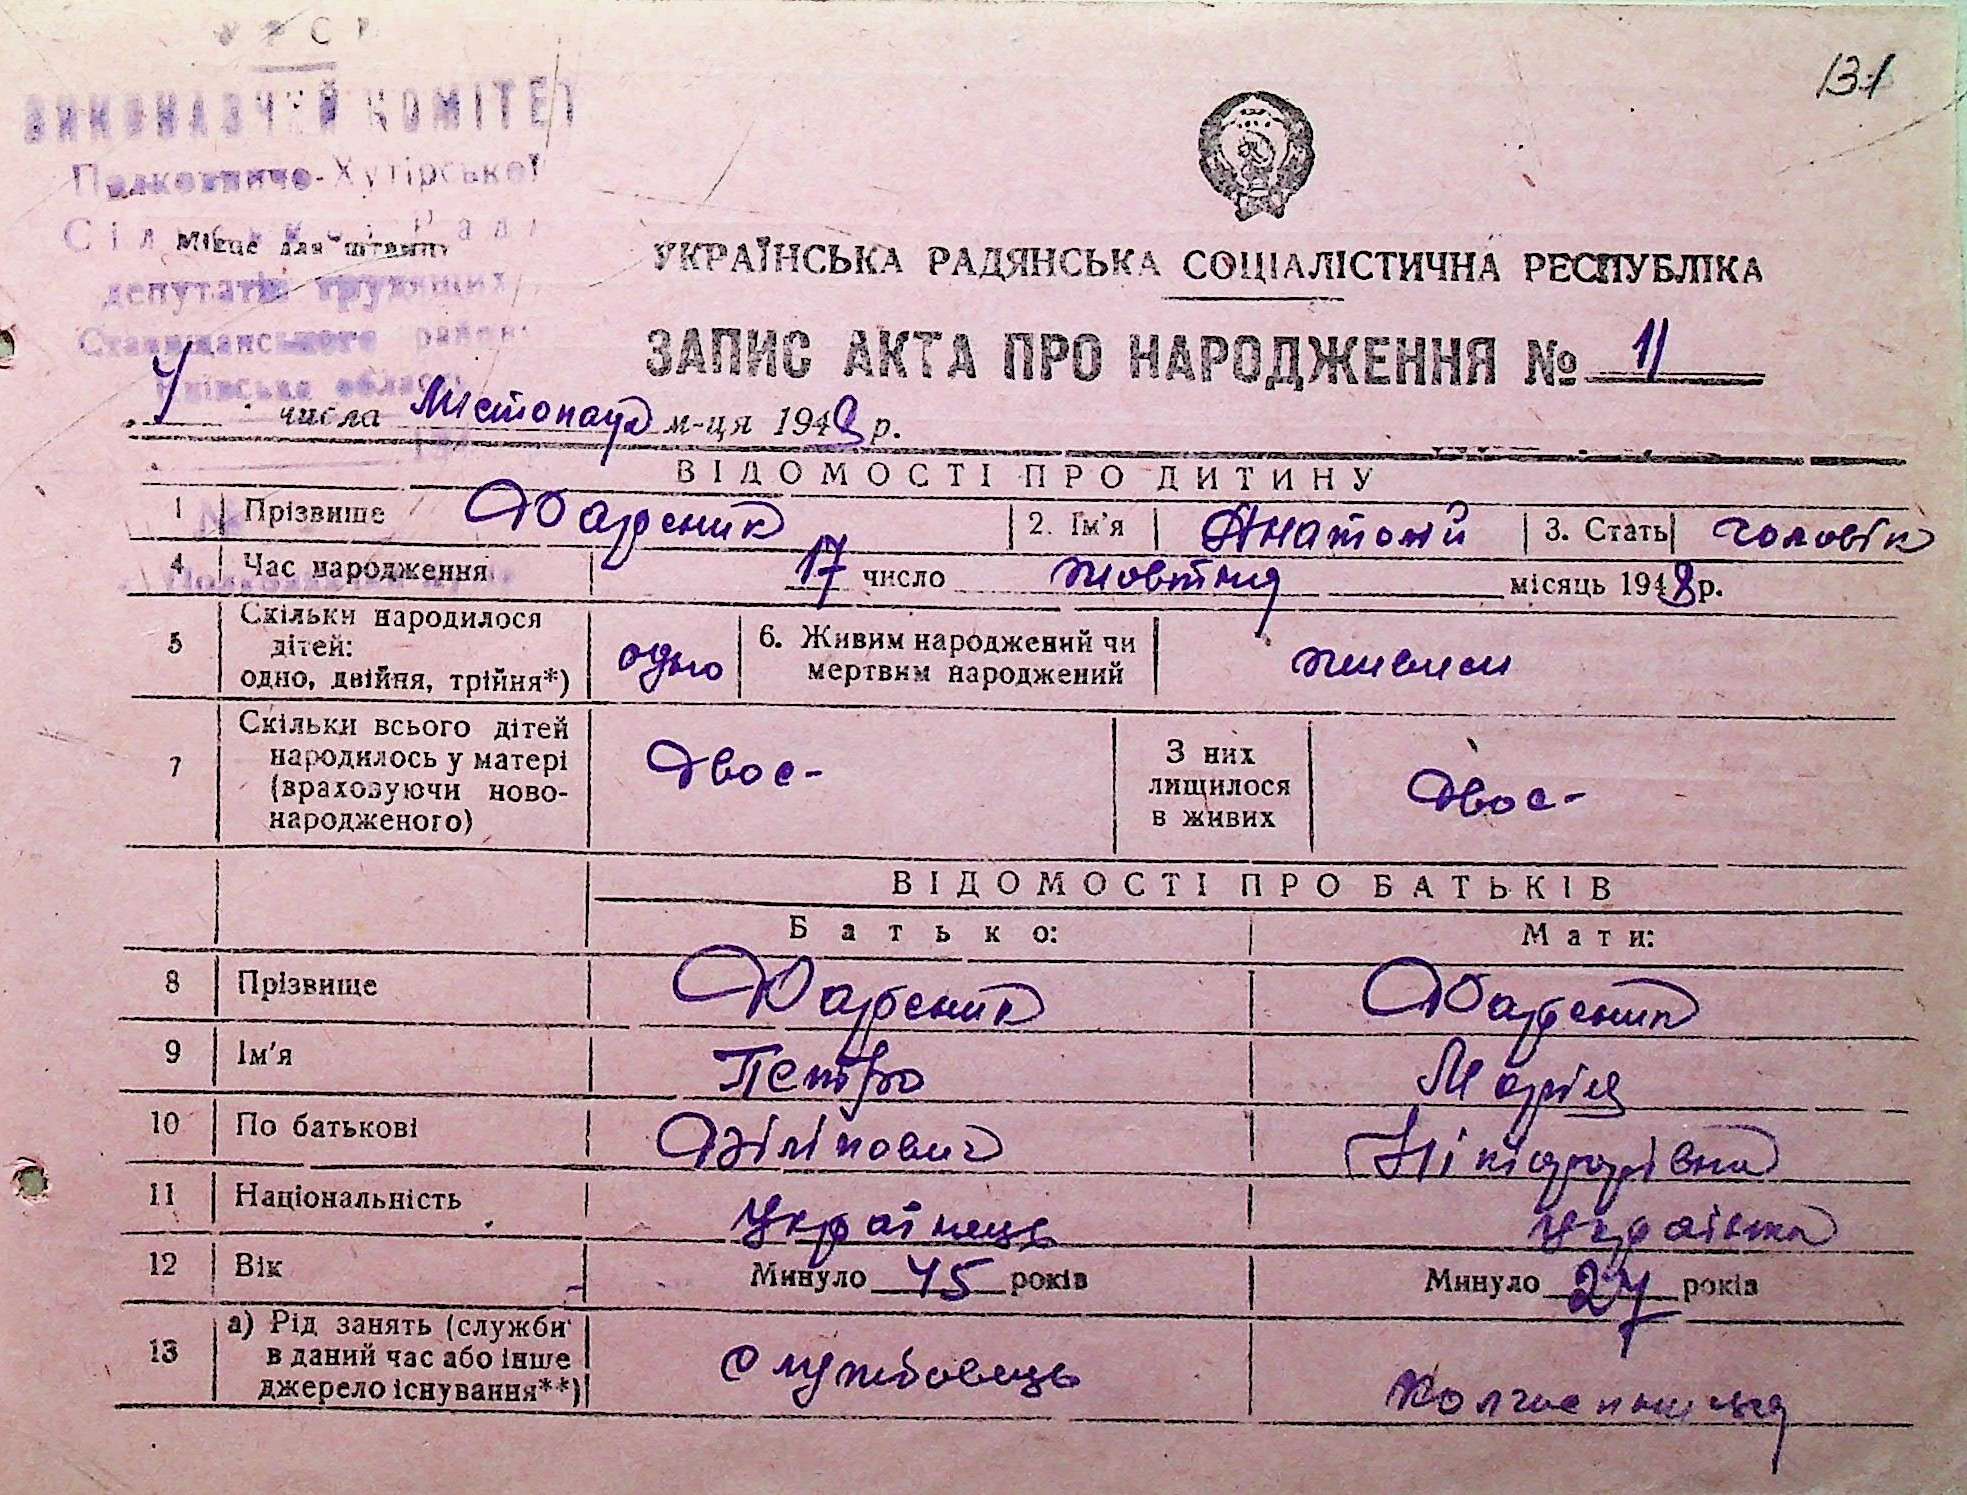 УРСР
131
ВИКОНАВЧИЙ КОМІТЕТ
Полковниче-Хутірської
Сільської Ради
Місце для штампу
депутатів трудящих
Ставищанського району
Київська область
УКРАЇНСЬКА РАДЯНСЬКА СОЦІАЛІСТИЧНА РЕСПУБЛІКА
ЗАПИС АКТА ПРО НАРОДЖЕННЯ № 11
числа Листопада м-ця 1948 р.
ВІДОМОСТІ ПРО ДИТИНУ
1 Прізвище 2. Ім'я Анатолій 3. Стать чоловік
4 Час народження 17 число жовтня місяць 1948 р.
5 Скільки народилося дітей: одно, двійня, трійня*) одно 6. Живим народжений чи мертвим народжений живим
7 Скільки всього дітей народилось у матері (враховуючи ново-народженого) Двоє- З них лищилося в живих Двоє-
ВІДОМОСТІ ПРО БАТЬКІВ
Батько: Мати:
8 Прізвище
9 Ім'я Петро Марія
10 По батькові Пілінович Нікіфорівна
11 Національність Українець Українка
12 Вік Минуло 45 років Минуло 27 років
13 а) Рід занять (служби в даний час або інше джерело існування**) Службовець Колгоспниця